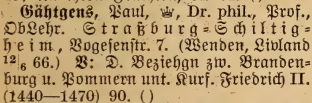 Gähtgens, Paul, ♕, Dr. phil., Prof.,
ObLehr. Straßburg-Schiltig-
heim, Vogesenstr. 7. (Wenden, Livland
12/6 66.) V: D. Beziehgn zw. Branden-
burg u. Pommern unt. Kurf. Friedrich II.
(1440—1470) 90. ()